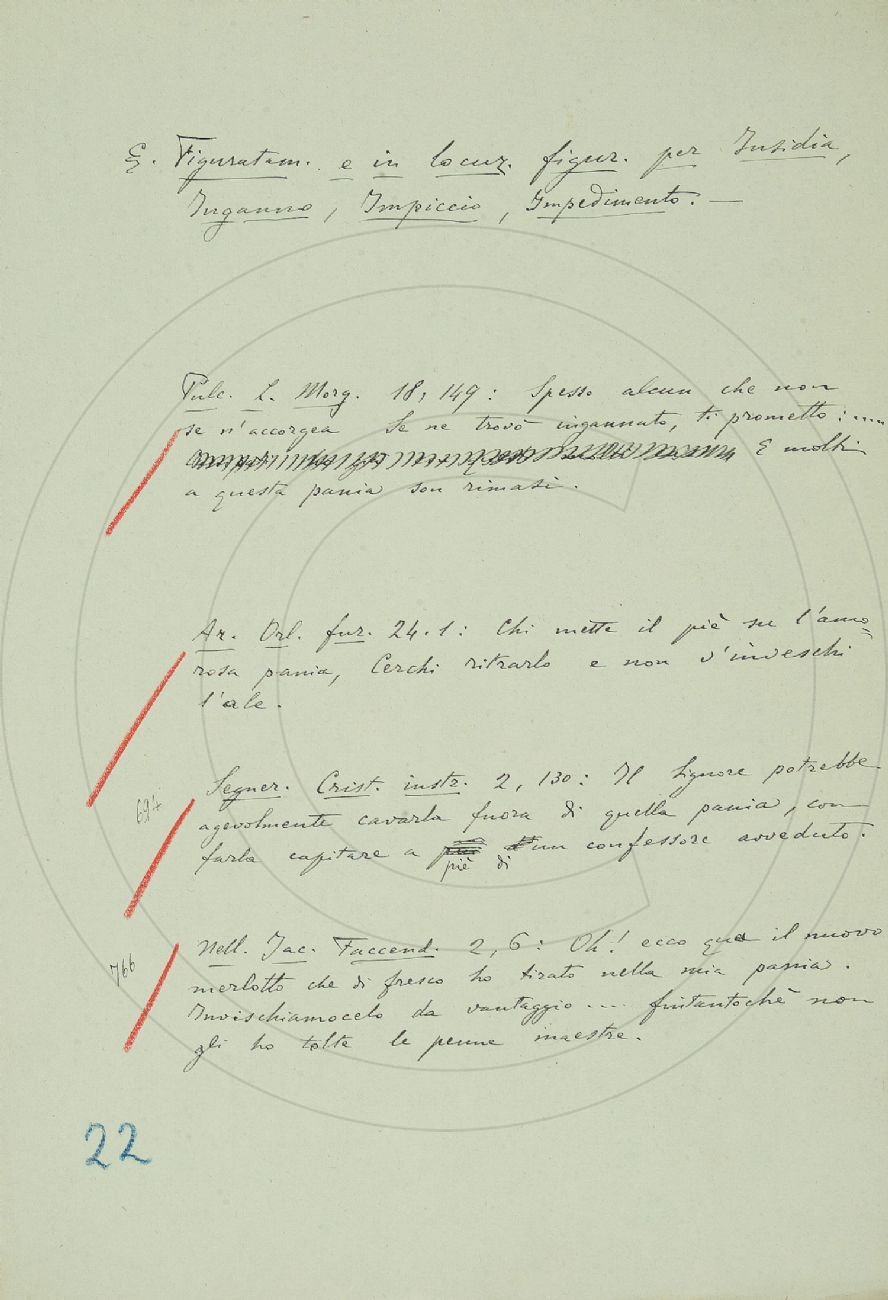 E. Figuratam. e in locuz. figur. per Insidia,
Inganno, Impiccio, Impedimento. —
Pulc. L. Morg. 18, 149: Spesso alcun che non
se n'accorgea Se ne trovò ingannato, ti prometto: ....
E molti
a questa pania son rimasi.
Ar. Orl. fur. 24. 1: Chi mette il piè su l'amo=
rosa pania, Cerchi ritrarlo e non v'inveschi
l'ale.
Segner. Crist. instr. 2, 130: Il Signore potrebbe
697
agevolmente cavarla fuora di quella pania, con
farla capitare a piè di un confessore avveduto.
Nell. Jac. Faccend. 2, 6: Oh! ecco qua il nuovo
766
merlotto che di fresco ho tirato nella mia pania.
Invischiamocelo da vantaggio .... fintantochè non
gli ho tolte le penne maestre.
22